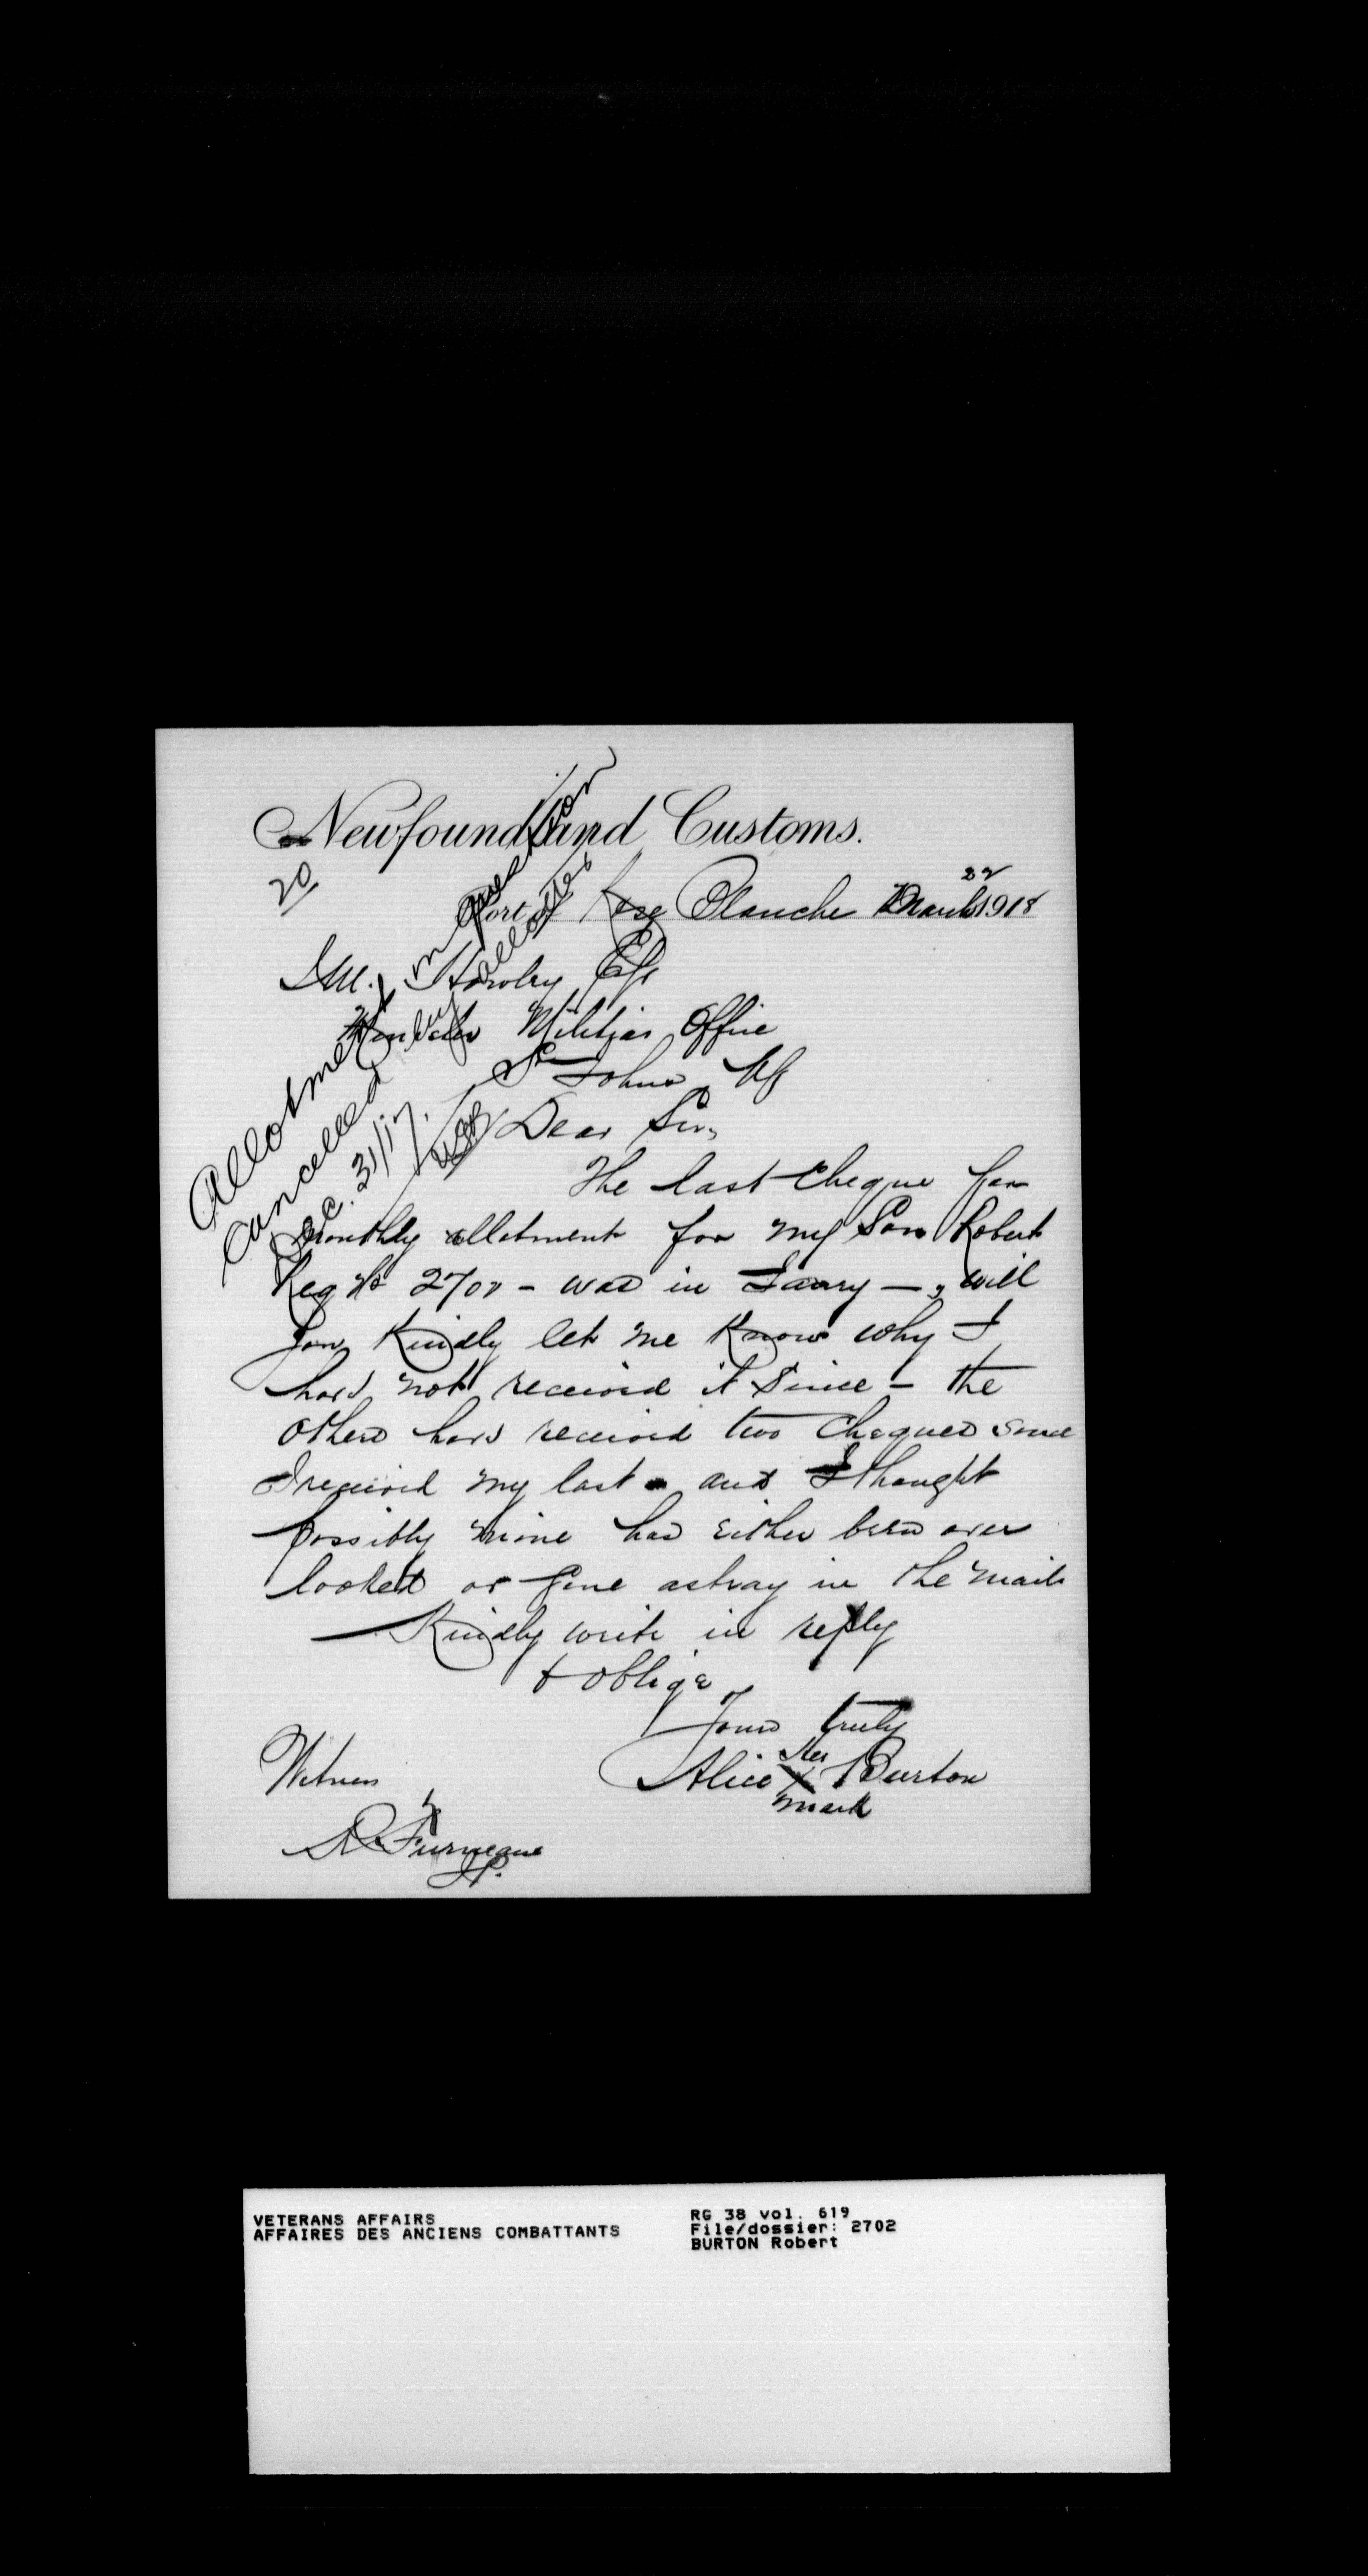 Newfoundland Customs.
20
Port of Rose Blanche March 22 1918
J.M. Howley Esq
Militia Office
St Johns Nf
Dear Sir,
The last cheque for
monthly allotment for my Son Robert
Reg No 2702 - was in Jany -, will
you Kindly let me Know why I
have not received it Since - the
others have received two cheques since
I received my last and I thought
possibly mine has either been over
looked or gone astray in the mails
Kindly write in reply
& oblige
Yours truly
Alice her X mark Burton
Witness
R Furneaux
J.P.
Allotment in question
cancelled by allotter
Dec. 31/17.
VETERANS AFFAIRS
AFFAIRES DES ANCIENS COMBATTANTS
RG 38 vol. 619
File/dossier: 2702
BURTON Robert